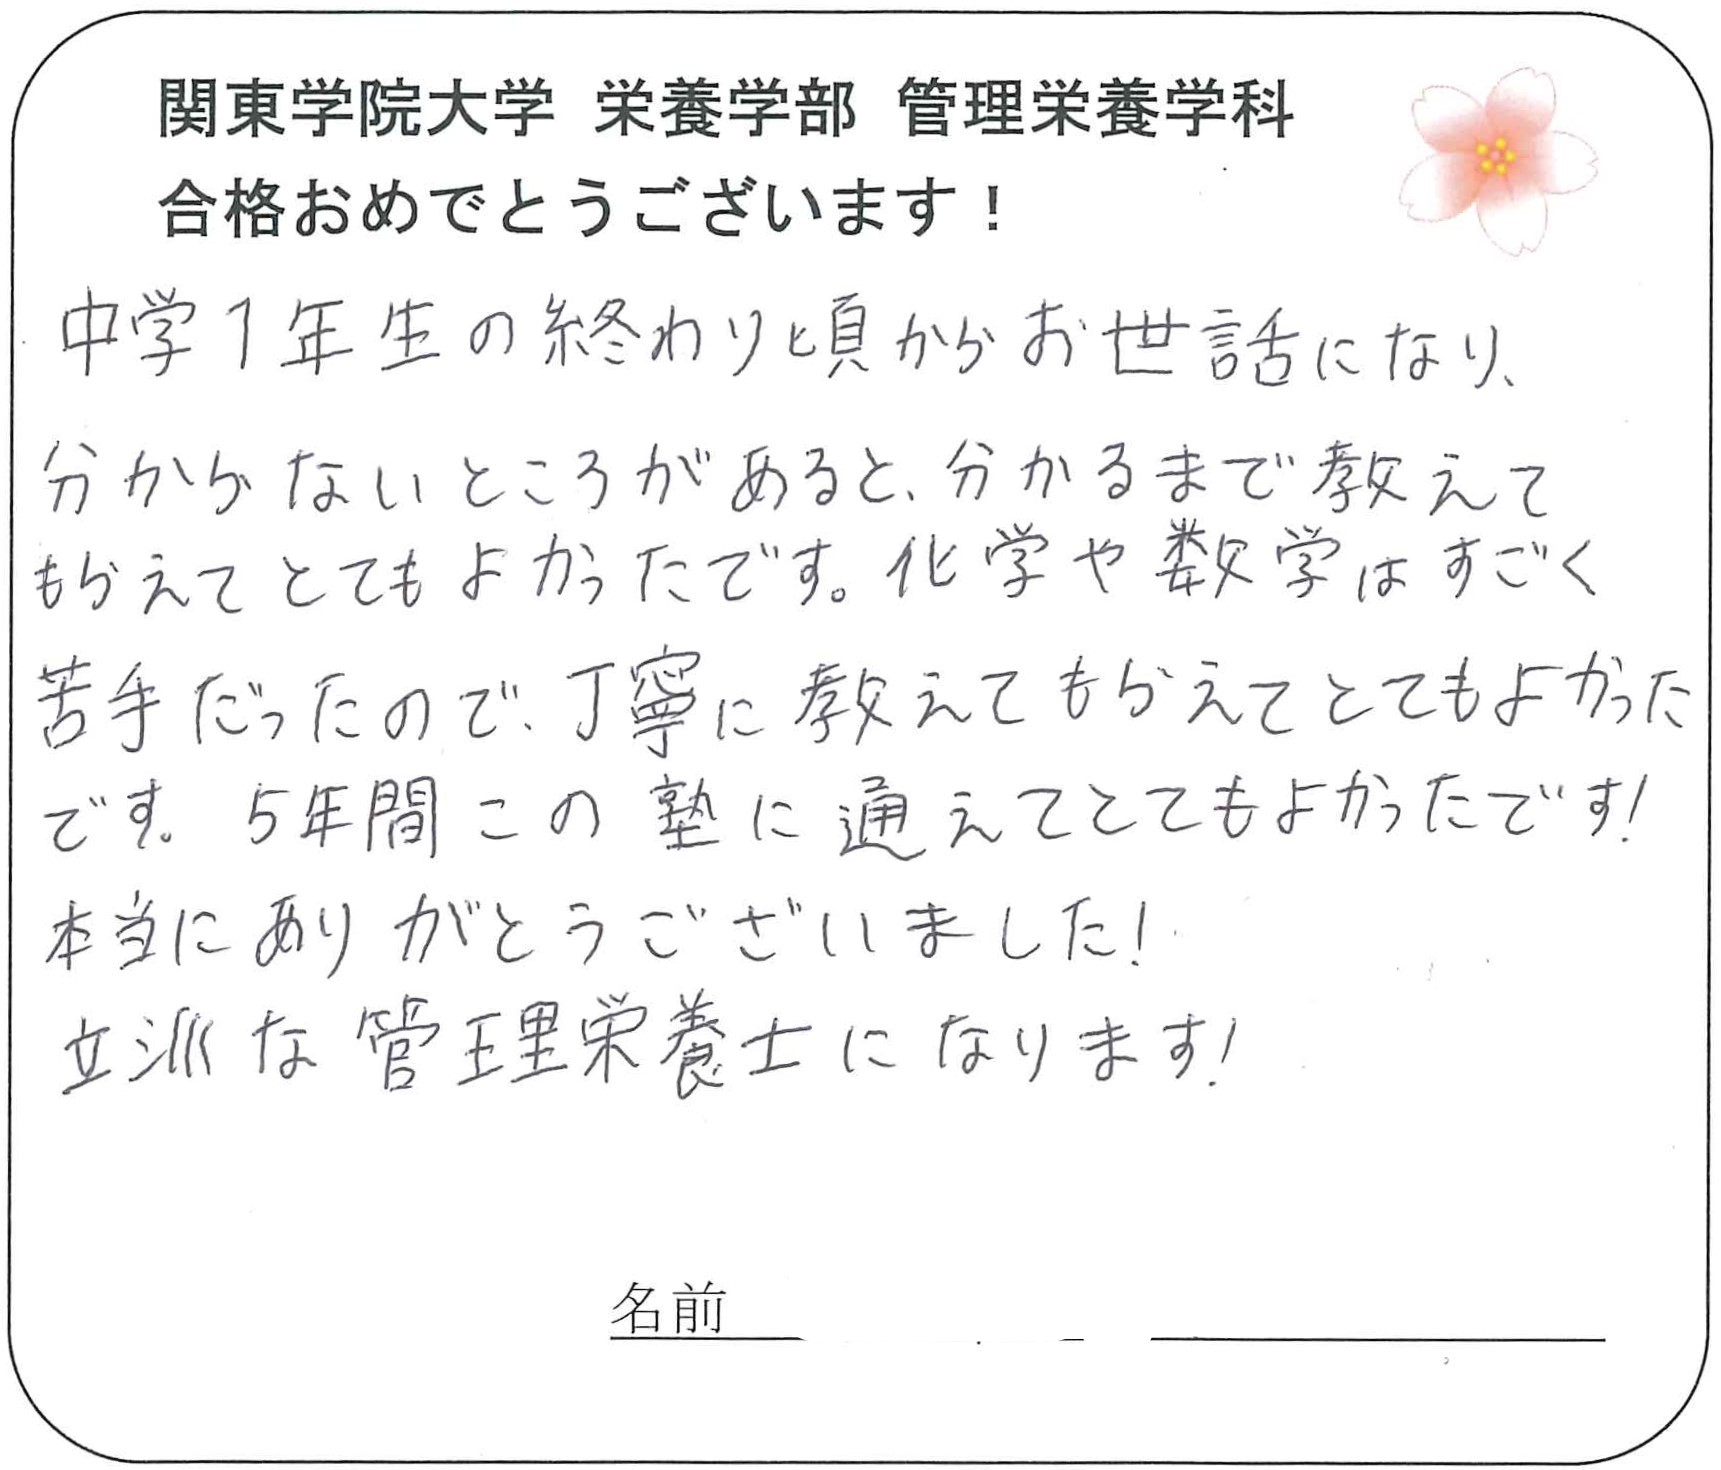 関東学院大学 栄養学部 管理栄養学科
合格おめでとうございます！
中学1年生の終わり頃からお世話になり、
分からないところがあると、分かるまで教えて
もらえてとてもよかったです。化学や数学はすごく
苦手だったので、丁寧に教えてもらえてとてもよかった
です。5年間この塾に通えてとてもよかったです!
本当にありがとうございました!
立派な管理栄養士になります!
名前